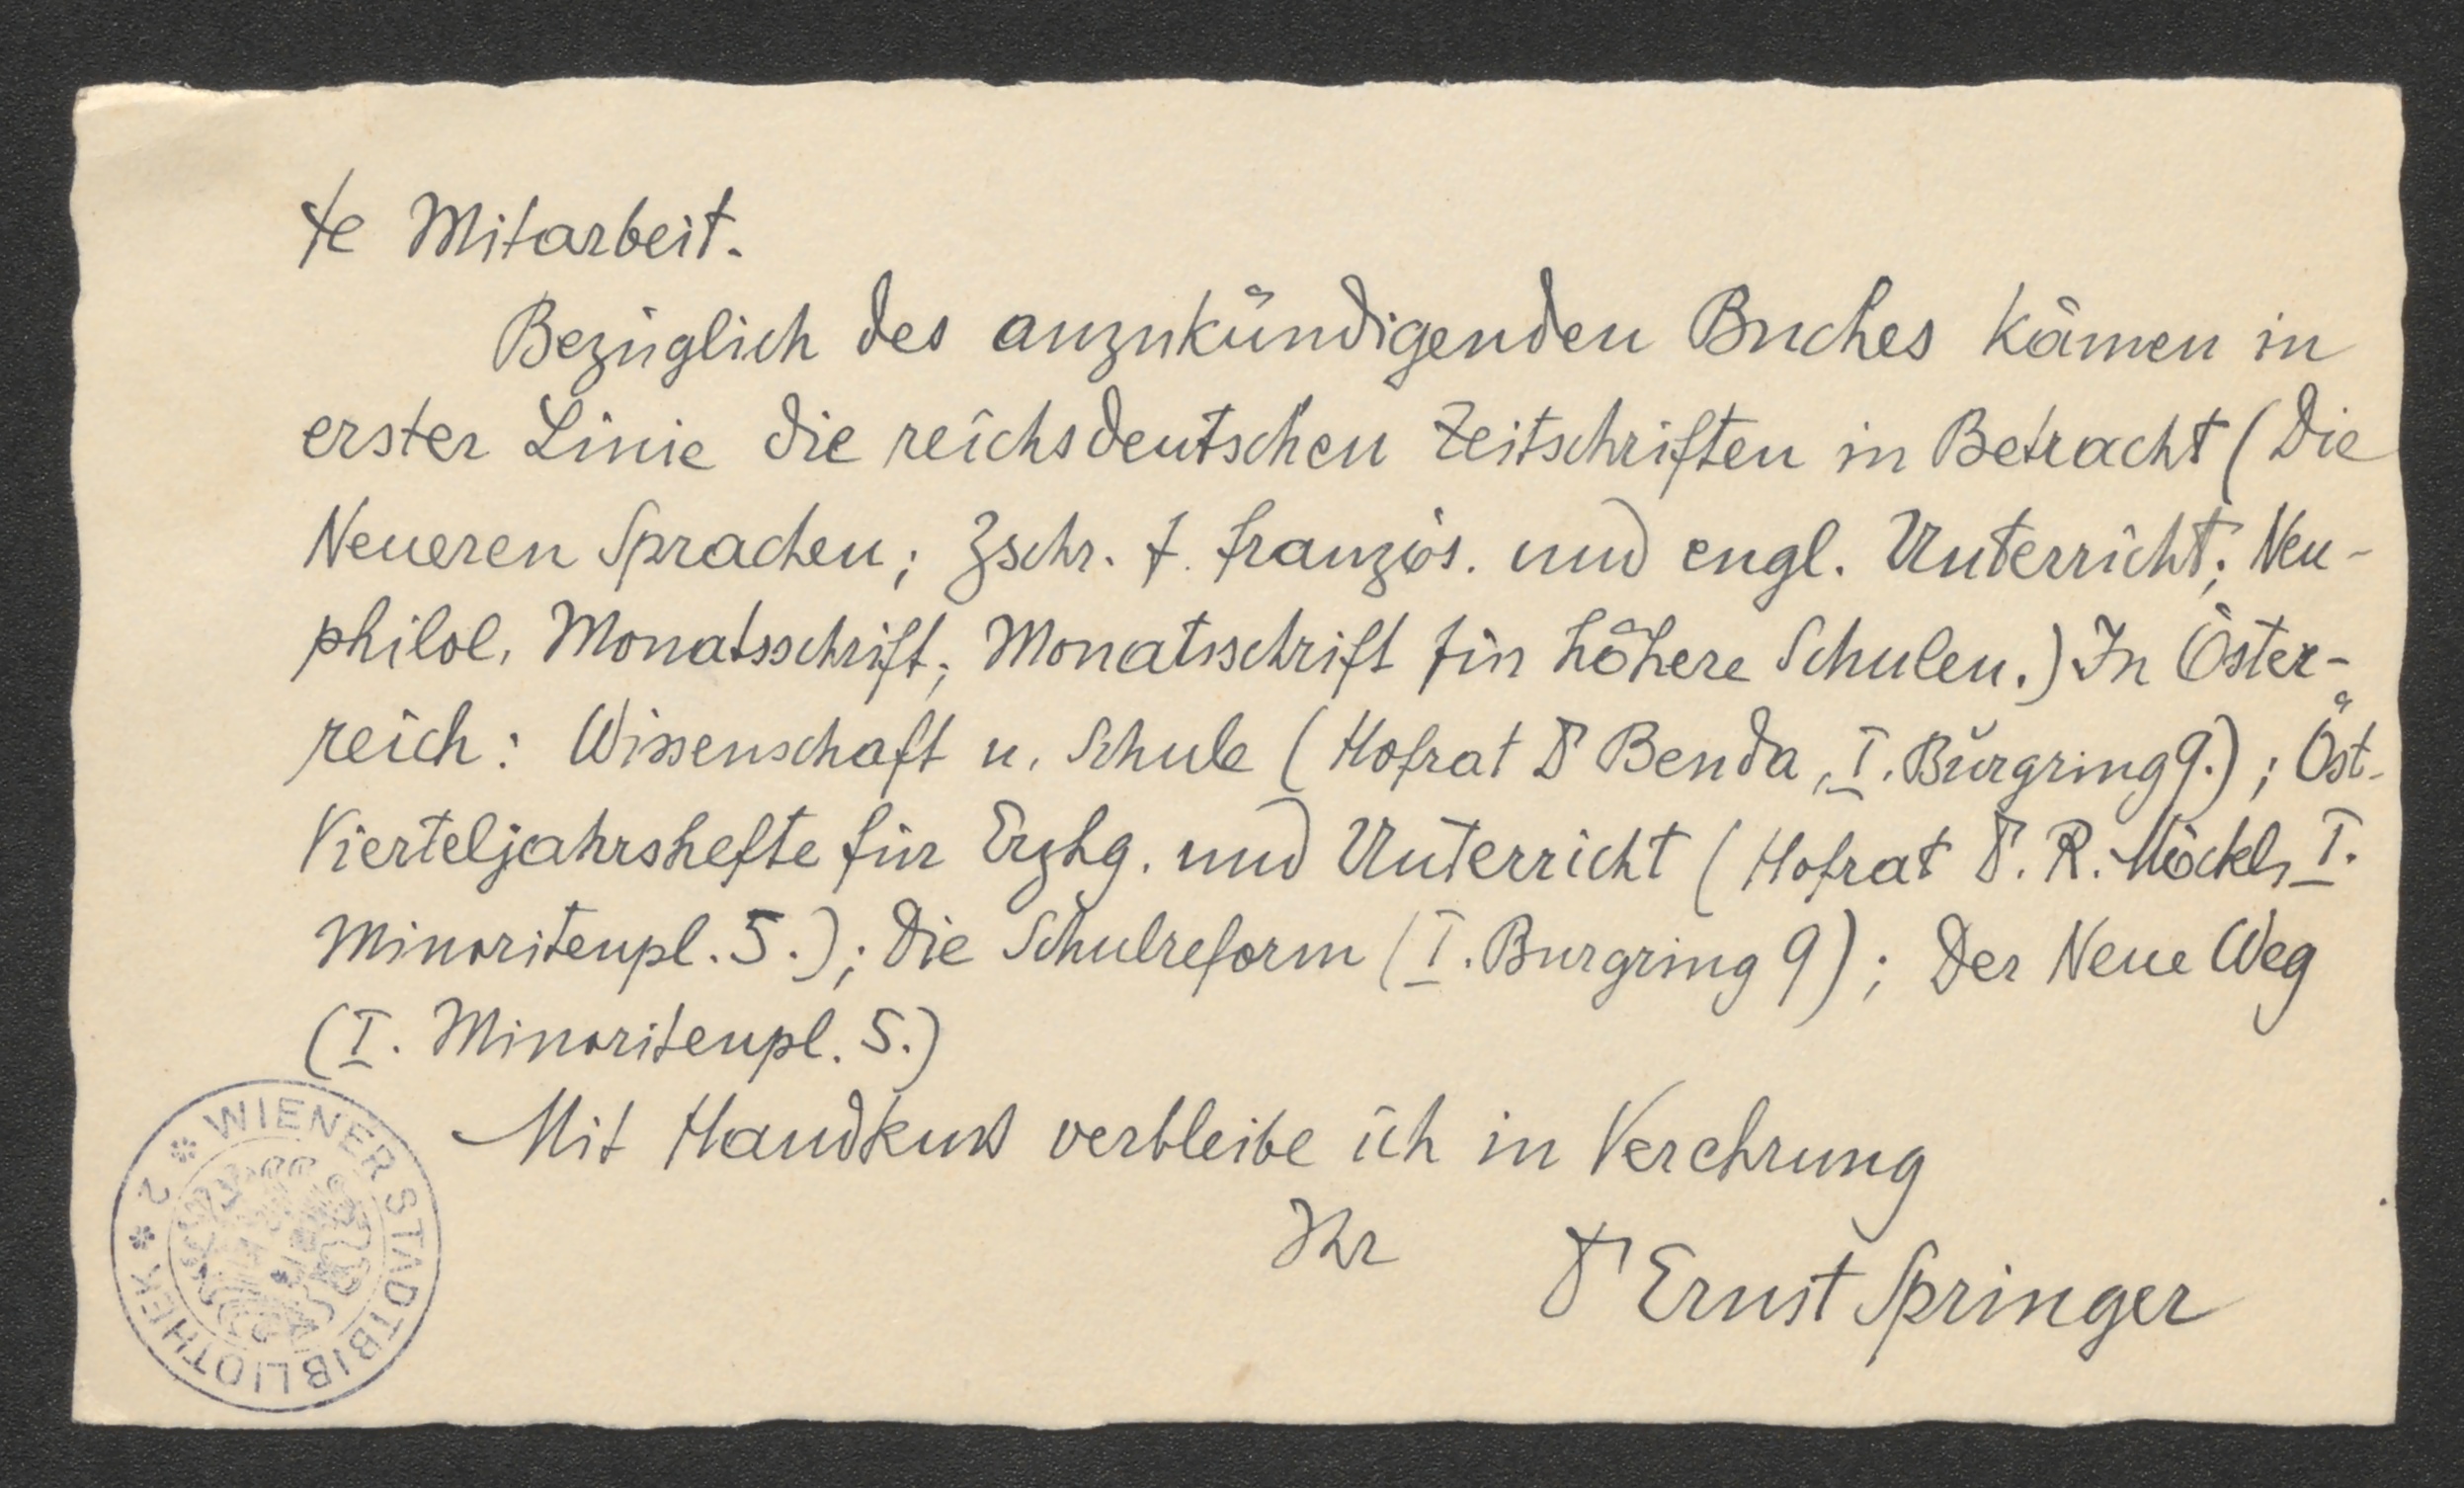 te Mitarbeit.
Bezüglich des anzukündigenden Buches kämen in
erster Linie die reichsdeutschen Zeitschriften in Betracht (Die
Neueren Sprachen; Zschr. f. französ. und engl. Unterricht; Neu-
philol. Monatsschrift; Monatsschrift für höhere Schulen.) In Öster-
reich: Wissenschaft u. Schule (Hofrat Dr Benda, I. Burgring 9.); Öst.
Vierteljahrshefte für Erzhg. und Unterricht (Hofrat Dr. R. Möckl, I.
Minoritenpl. 5.); Die Schulreform (I. Burgring 9); Der Neue Weg
(I. Minoritenpl. 5.)
Mit Handkuss verbleibe ich in Verehrung
Ihr Dr Ernst Springer
WIENER STADTBIBLIOTHEK * 2 *